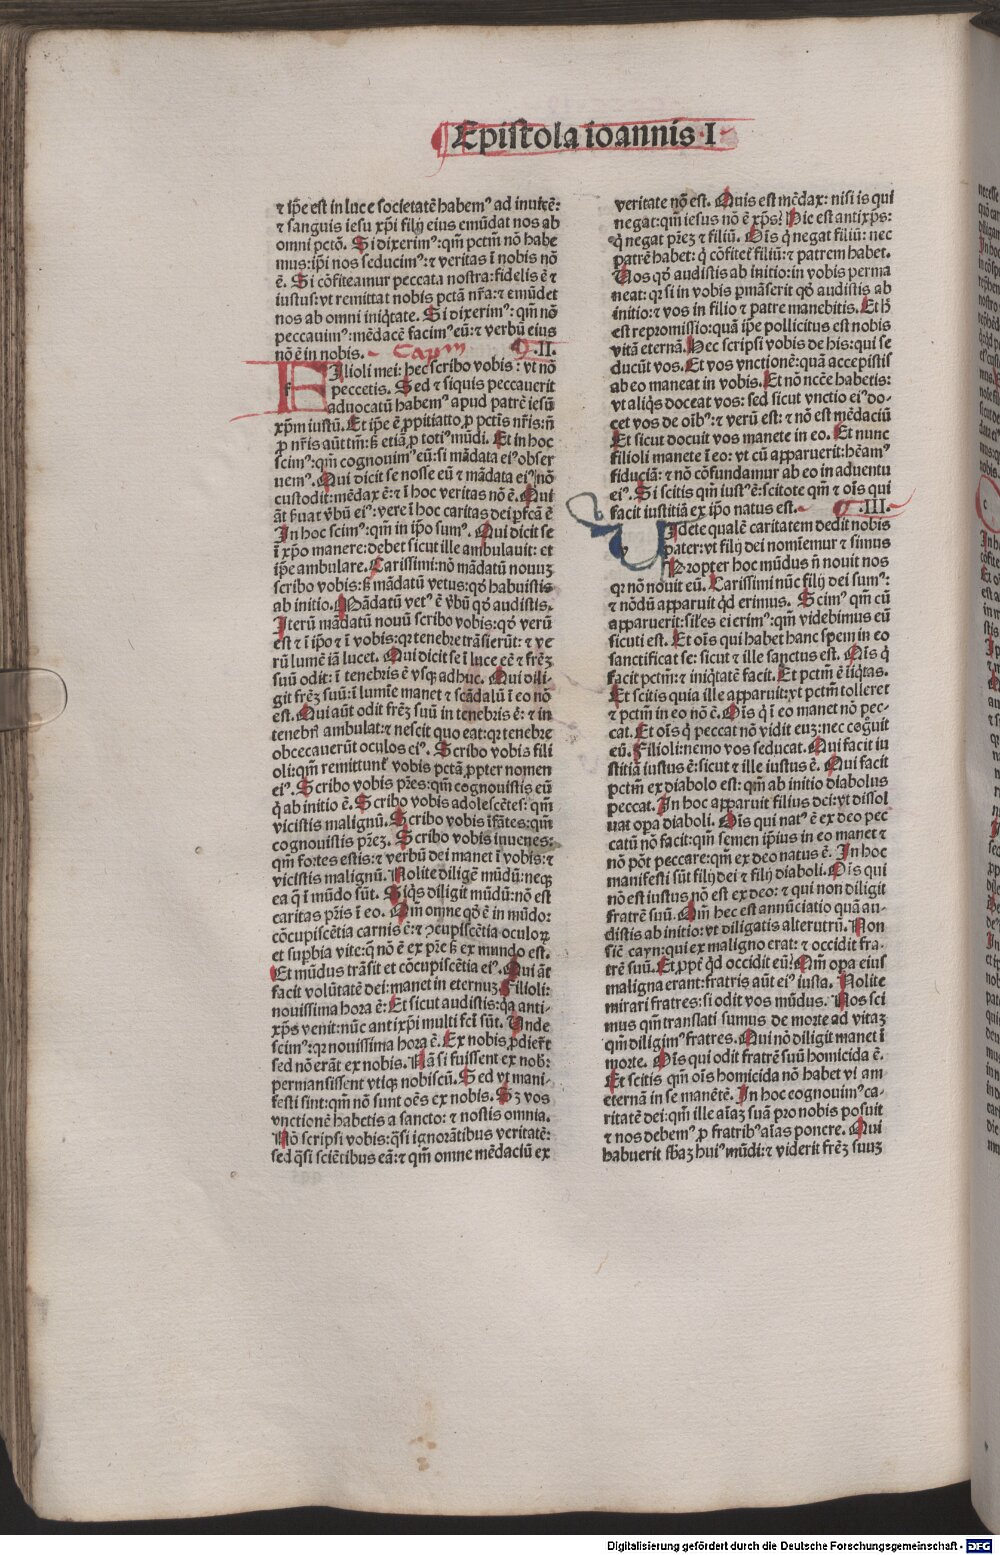 Epistola ioannis I
⁊ ip̄e est in luce societatē habemꝰ ad inuicē:
⁊ sanguis iesu xp̄i filij eius emūdat nos ab
omni pctō. Si dixerimꝰ: qm̄ pctm̄ nō habe
mus: ip̄i nos seducimꝰ: ⁊ veritas ī nobis nō
ē. Si cōfiteamur peccata nostra: fidelis ē ⁊
iustus: vt remittat nobis pctā nr̄a: ⁊ emūdet
nos ab omni iniq̇tate. Si dixerimꝰ: qm̄ nō
peccauimꝰ: mēdacē facimꝰ eū: ⁊ verbū eius
nō ē in nobis. Capm .II.
Filioli mei: hec scribo vobis: vt nō
peccetis. Sed ⁊ siquis peccauerit
aduocatū habemꝰ apud patrē iesū
xp̄m iustū. Et ip̄e ē ꝓpitiatio ꝓ pctīs nr̄is: nō
ꝓ nr̄is aūt tm̄: sꝫ etiā ꝓ totiꝰ mūdi. Et in hoc
scimꝰ: qm̄ cognouimꝰ eū: si mādata eiꝰ obser
uemꝰ. Qui dicit se nosse eū ⁊ mādata eiꝰ nō
custodit: mēdax ē: ⁊ ī hoc veritas nō ē. Qui
āt ẜuat v̓bū eiꝰ: vere ī hoc caritas dei ꝑfcā ē
In hoc scimꝰ: qm̄ in ip̄o sumꝰ. Qui dicit se
ī xp̄o manere: debet sicut ille ambulauit: et
ip̄e ambulare. Carissimi: nō mādatū nouuꝫ
scribo vobis: sꝫ mādatū vetus: qd̓ habuistis
ab initio. Mādatū vetꝰ ē v̓bū qd̓ audistis.
Iterū mādatū nouū scribo vobis: qd̓ verū
est ⁊ ī ip̄o ⁊ ī vobis: qꝛ tenebre trāsierūt: ⁊ ve
rū lumē iā lucet. Qui dicit se ī luce eē ⁊ frēꝫ
suū odit: ī tenebris ē vsqꝫ adhuc. Qui dili-
git frēꝫ suū: ī lumīe manet ⁊ scādalū ī eo nō
est. Qui aūt odit frēꝫ suū in tenebris ē: ⁊ in
tenebr̄ ambulat: ⁊ nescit quo eat: qꝛ tenebre
obcecauerūt oculos eiꝰ. Scribo vobis fili
oli: qm̄ remittunt̉ vobis pctā ꝓpter nomen
eiꝰ. Scribo vobis pr̄es: qm̄ cognouistis eū
q̇ ab initio ē. Scribo vobis adolescētes: qm̄
vicistis malignū. Scribo vobis īfātes: qm̄
cognouistis pr̄eꝫ. Scribo vobis iuuenes:
qm̄ fortes estis: ⁊ verbū dei manet ī vobis: ⁊
vicistis malignū. Nolite diligē mūdū: neqꝫ
ea q̄ ī mūdo sūt. Siq̇s diligit mūdū: nō est
caritas pr̄is ī eo. Qm̄ omne qd̓ ē in mūdo:
cōcupiscētia carnis ē: ⁊ ꝯcupiscētia oculoꝝ
et suꝑbia vite: q̄ nō ē ex pr̄e sꝫ ex mundo est.
Et mūdus trāsit et cōcupiscētia eiꝰ. Qui āt
facit volūtatē dei: manet in eternuꝫ. Filioli:
nouissima hora ē: Et sicut audistis: qꝛ anti-
xp̄s venit: nūc antixp̄i multi fcī sūt. Unde
scimꝰ: qꝛ nouissima hora ē. Ex nobis ꝓdier̄t
sed nō erāt ex nobis. Nā si fuissent ex nob̓:
permansissent vtiqꝫ nobiscū. Sed vt mani-
festi sint: qm̄ nō sunt oēs ex nobis. Sꝫ vos
vnctionē habetis a sancto: ⁊ nostis omnia.
Nō scripsi vobis: q̄si ignorātibus veritatē:
sed q̄si sciētibus eā: ⁊ qm̄ omne mēdaciū ex
veritate nō est. Quis est mēdax: nisi is qui
negat: qm̄ iesus nō ē xp̄s? Hic est antixp̄s:
q̇ negat pr̄eꝫ ⁊ filiū. Oīs q̇ negat filiū: nec
patrē habet: q̇ cōfitet̉ filiū: ⁊ patrem habet.
Uos qd̓ audistis ab initio: in vobis perma
neat: qꝛ si in vobis ꝑmāserit qd̓ audistis ab
initio: ⁊ vos in filio ⁊ patre manebitis. Et h̓
est repromissio: quā ip̄e pollicitus est nobis
vitā eternā. Hec scripsi vobis de his: qui se
ducūt vos. Et vos vnctionē: quā accepistis
ab eo maneat in vobis. Et nō ncc̄e habetis:
vt aliq̇s doceat vos: sed sicut vnctio eiꝰ do-
cet vos de oībꝰ: ⁊ verū est: ⁊ nō est mēdaciū
Et sicut docuit vos manete in eo. Et nunc
filioli manete ī eo: vt cū apparuerit: hēamꝰ
fiduciā: ⁊ nō cōfundamur ab eo in aduentu
eiꝰ. Si scitis qm̄ iustꝰ ē: scitote qm̄ ⁊ oīs qui
facit iustitiā ex ip̄o natus est. .III.
Uidete qualē caritatem dedit nobis
pater: vt filij dei nomīemur ⁊ simus
Propter hoc mūdus nō nouit nos
qꝛ nō nouit eū. Carissimi nūc filij dei sumꝰ:
⁊ nōdū apparuit qd̓ erimus. Scimꝰ qm̄ cū
apparuerit: sil̓es ei erimꝰ: qm̄ videbimus eū
sicuti est. Et oīs qui habet hanc spem in eo
sanctificat se: sicut ⁊ ille sanctus est. Oīs q̇
facit pctm̄: ⁊ iniq̇tatē facit. Et pctm̄ ē iīq̇tas.
Et scitis quia ille apparuit: vt pctm̄ tolleret
⁊ pctm̄ in eo nō ē. Oīs q̇ ī eo manet nō pec-
cat. Et oīs q̇ peccat nō vidit euꝫ: nec cog̓uit
eū. Filioli: nemo vos seducat. Qui facit iu
stitiā iustus ē: sicut ⁊ ille iustus ē. Qui facit
pctm̄ ex diabolo est: qm̄ ab initio diabolus
peccat. In hoc apparuit filius dei: vt dissol
uat oꝑa diaboli. Oīs qui natꝰ ē ex deo pec
catū nō facit: qm̄ semen ip̄ius in eo manet ⁊
nō pōt peccare: qm̄ ex deo natus ē. In hoc
manifesti sūt filij dei ⁊ filij diaboli. Oīs qui
nō est iustus nō est ex deo: ⁊ qui non diligit
fratrē suū. Qm̄ hec est annūciatio quā au-
distis ab initio: vt diligatis alterutrū. Non
sic̄ cayn: qui ex maligno erat: ⁊ occidit fra-
trē suū. Et ꝓpt̓ qd̓ occidit eū? Qm̄ oꝑa eius
maligna erant: fratris aūt eiꝰ iusta. Nolite
mirari fratres: si odit vos mūdus. Nos sci
mus qm̄ translati sumus de morte ad vitaꝫ
qm̄ diligimꝰ fratres. Qui nō diligit manet ī
morte. Oīs qui odit fratrē suū homicida ē.
Et scitis qm̄ oīs homicida nō habet vitam
eternā in se manētē. In hoc cognouimꝰ ca-
ritatē dei: qm̄ ille aīaꝫ suā pro nobis posuit
⁊ nos debemꝰ ꝓ fratribꝰ aīas ponere. Qui
habuerit sb̄aꝫ huiꝰ mūdi: ⁊ viderit frēꝫ suuꝫ
Digitalisierung gefördert durch die Deutsche Forschungsgemeinschaft - DFG